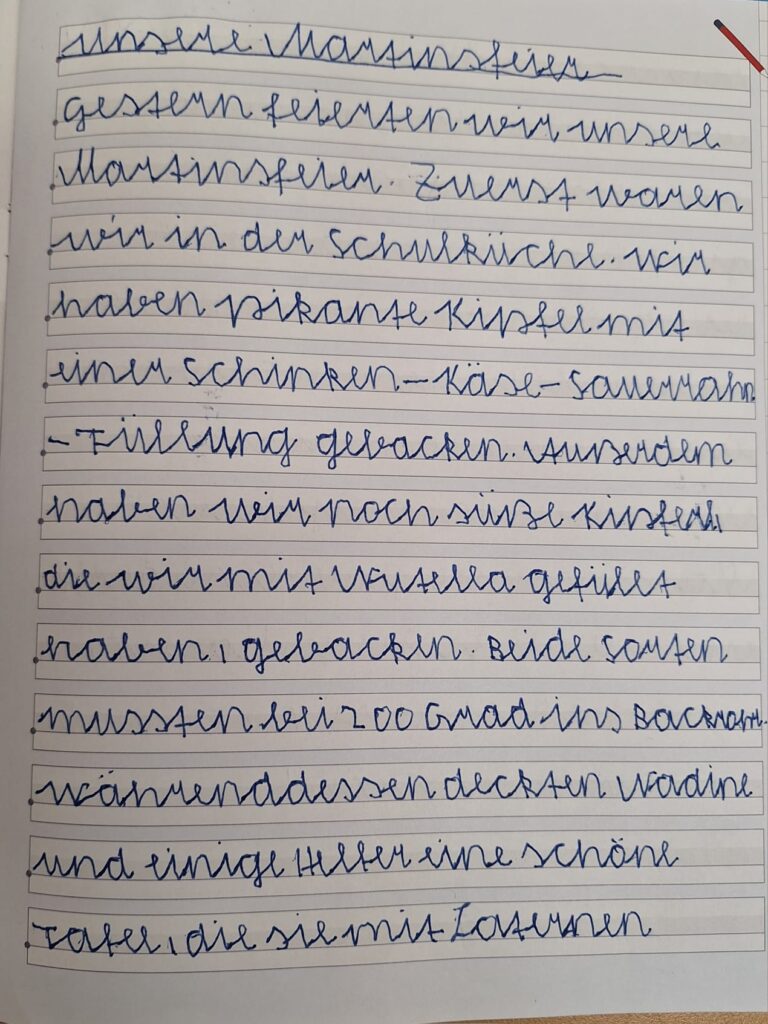 Unsere Martinsfeier
Gestern feierten wir unsere
Martinsfeier. Zuerst waren
wir in der Schulküche. Wir
haben pikante Kipferl mit
einer Schinken-Käse-Sauerrahm
-Füllung gebacken. Außerdem
haben wir noch süße Kipferl,
die wir mit Nutella gefüllt
haben, gebacken. Beide Sorten
mussten bei 200 Grad ins Backrohr.
Währenddessen deckten Nadine
und einige Helfer eine schöne
Tafel, die sie mit Laternen